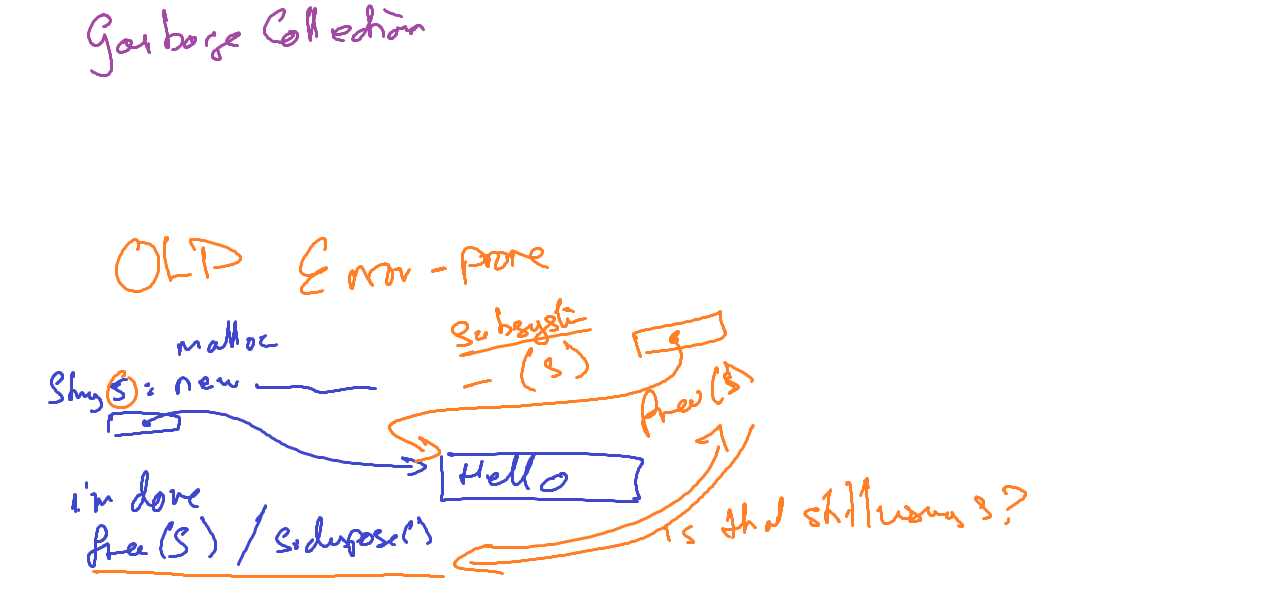 Garbage Collection
OLD Error-prone
malloc
String s = new
subsystem
- (s)
free(s)
Hello
i'm done
free(s) / s.dispose()
is that still using s?